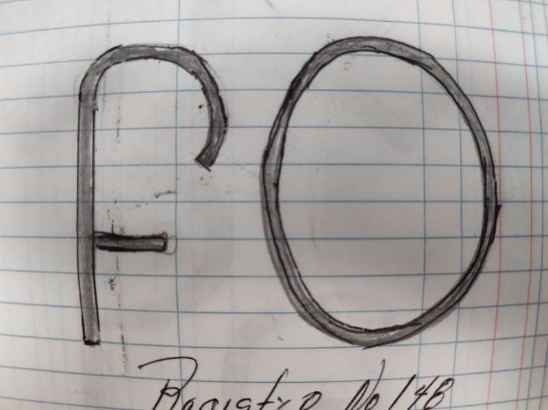 FO
Registro No 148